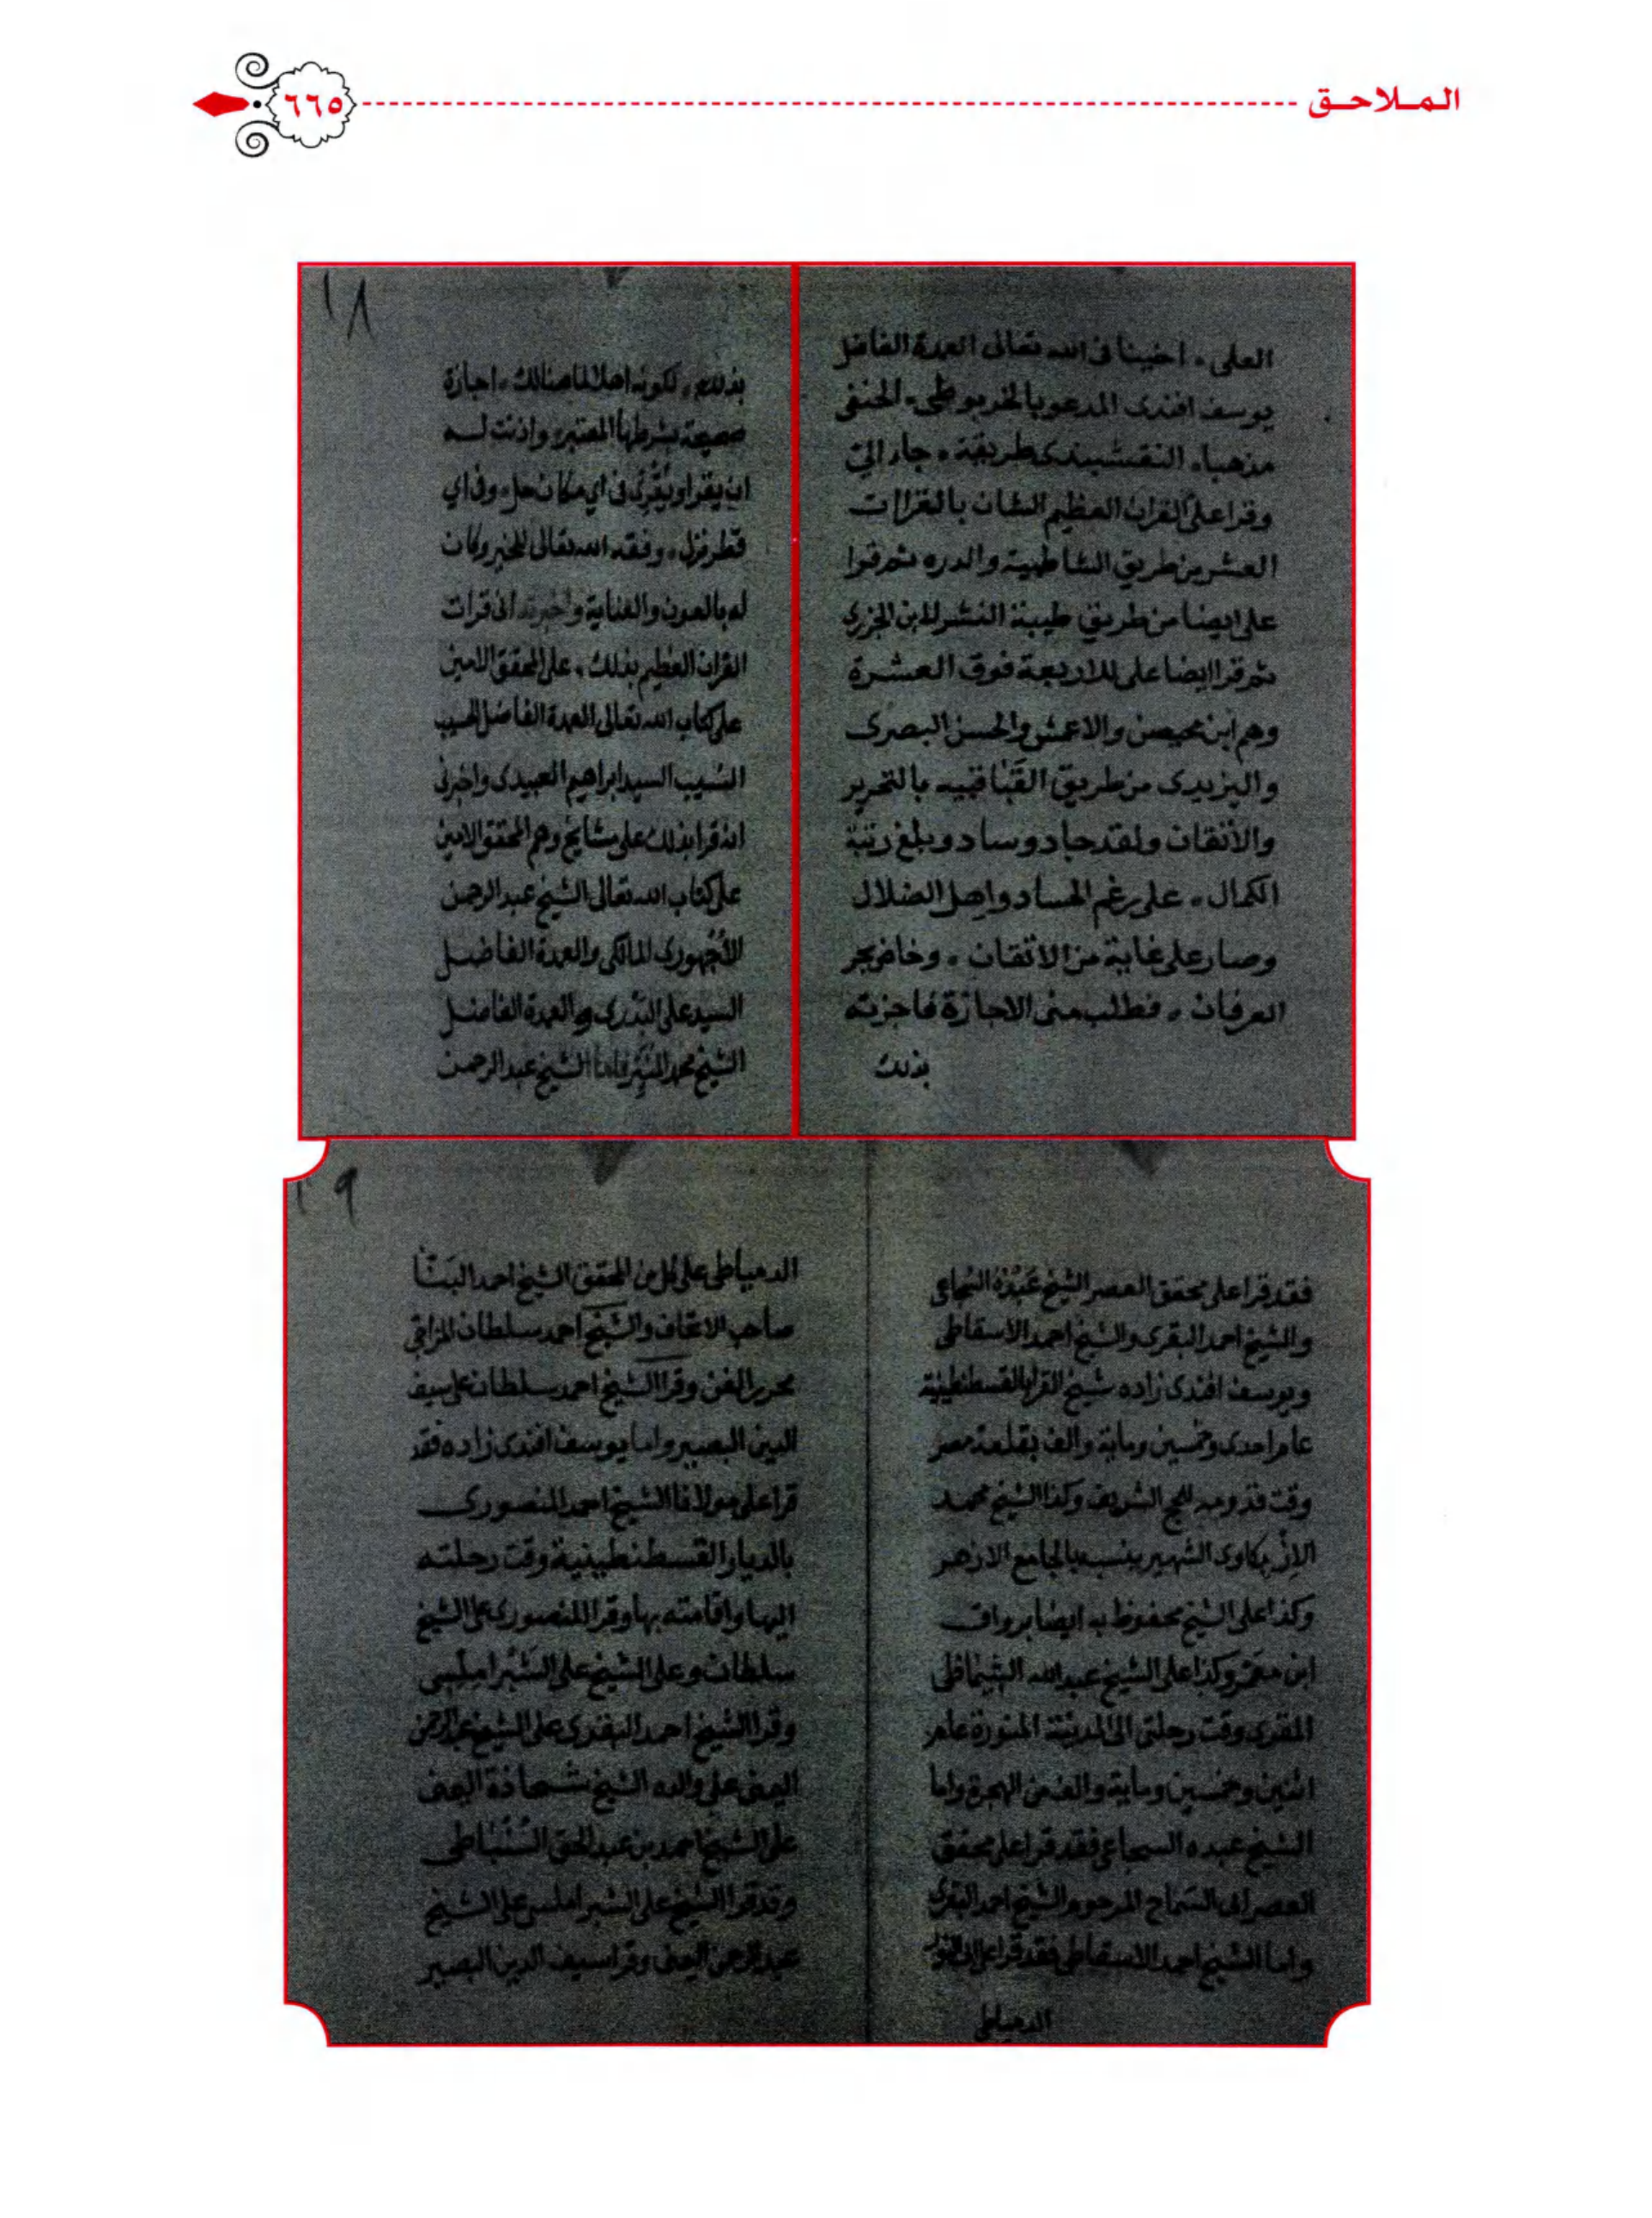 الملاحق
٦٦٥
العلى، اخينا فى الله تعالى العمدة الفاضل
يوسف افندى المدعو بالخربوطلى، الحنفى
مذهبا، النقشبندى طريقة، جاء الىّ
وقرا علىّ القران العظيم الشان بالقراات
العشر من طريق الشاطبية والدره ثم قرا
على ايضا من طريق طيبة النشر للابن الجزرى
ثم قرا ايضا على للاربعة فوق العشرة
وهم ابن محيصن والاعمش والحسن البصرى
واليزيدى من طريق القَبَاقبيه بالتحرير
والاتقان ولقد جاد وساد وبلغ رتبة
الكمال، على رغم الحساد واهل الضلال
وصار على غاية من الاتقان، وخاض بحر
العرفان، فطلب منى الاجازة فاجزته
بذلك
١٨
بذلك، لكونه اهلا لما هنالك، اجازة
صحيحة بشرطها المعتبر، واذنت له
ان يقرا ويُقرِئ فى اي مكان حل، وفى اي
قطر نزل، وفقه الله تعالى للخير وكان
له بالعون والعناية واخبرته انى قرات
القران العظيم بذلك، على المحقق الامين
على كتاب الله تعالى العمدة الفاضل الحسيب
النسيب السيد ابراهيم العبيدى واخبرنى
انه قرا بذلك على مشايخ وهم المحقق الامين
على كتاب الله تعالى الشيخ عبد الرحمن
الاُجْهورى المالكى والعمدة الفاضل
السيد على البَدْرى والعمدة الفاضل
الشيخ محمد المُنَيِّر فاما الشيخ عبد الرحمن
فقد قرا على محقق العصر الشيخ عَبْدُهْ السُّجاعى
والشيخ احمد البقرى والشيخ احمد الاسقاطى
ويوسف افندى زاده شيخ القرا بالقسطنطينية
عام احدى وخمسين وماية والف بقلعة مصر
وقت قدومه للحج الشريف وكذا الشيخ محمد
الازبكاوى الشهير بنسبه بالجامع الازهر
وكذا على الشيخ محفوظ به ايضا برواق
ابن معمر وكذا على الشيخ عبد الله الشماطى
المقرى وقت رحلتى الى المدينة المنورة عام
اثنين وخمسين وماية والف من الهجرة واما
الشيخ عبده السجاعى فقد قرا على محقق
العصر ابى السماح المرحوم الشيخ احمد البقرى
واما الشيخ احمد الاسقاطى فقد قرا على ابى النور
الدمياطى
١٩
الدمياطى على كل من المحقق الشيخ احمد البَنّا
صاحب الاتحاف والشيخ احمد سلطان المزاحى
محرير الفن وقرا الشيخ احمد سلطان على سيف
الدين البصير واما يوسف افندى زاده فقد
قرا على مولانا الشيخ احمد المنصورى
بالديار القسطنطينية وقت رحلته
اليها واقامته بها وقرا المنصورى على الشيخ
سلطان وعلى الشيخ على الشَبْرامِلّسى
وقرا الشيخ احمد البقرى على الشيخ عبد الرحمن
اليمنى على والده الشيخ شحاذة اليمنى
على الشيخ احمد بن عبد الحق السُنْبَاطى
وقد قرا الشيخ على الشبراملسى على الشيخ
عبد الرحمن اليمنى وقرا سيف الدين البصير